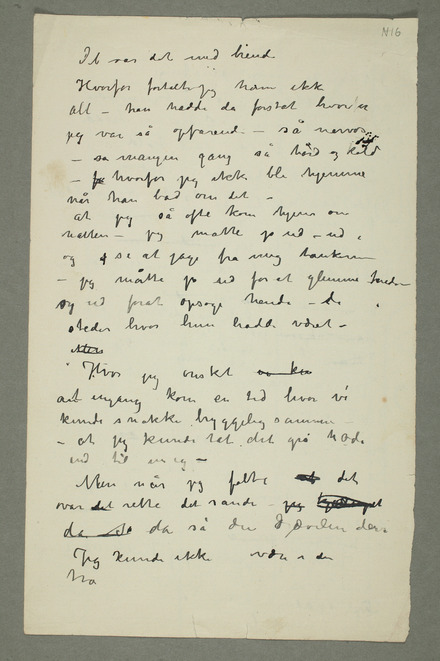 N16
var det med hende
Hvorfor fortalte jeg ham ikk
alt – han hadde da forståt hvorfor
jeg var så opfarend – så nervøs
– så mangen gang så hård og kold
– hvorfor jeg ikke ble hjemme
når han bad om det –
at jeg så ofte kom hjem om
natten – jeg måtte jo ud – ud
og se at jage fra mig tankerne
– jeg måtte jo ud for at glemme
og ud forat opsøge hende – de
steder hvor hun hadde været –
Men
Hvor jeg ønsket
at engang kom en tid hvor vi
kunde snakke hyggelig sammen –
– at jeg kunde tat det grå hode
ind til mig –
Men når jeg følte at det
var det rette det sande – jeg
da da så du
Jeg kunde ikke være den